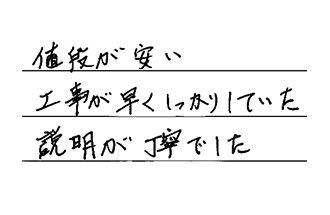 値段が安い
工事が早くしっかりしていた
説明が丁寧でした